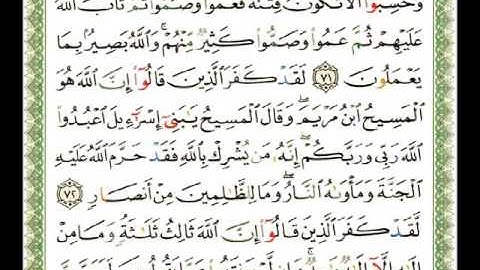 وَحَسِبُوٓا۟ أَلَّا تَكُونَ فِتْنَةٌ فَعَمُوا۟ وَصَمُّوا۟ ثُمَّ تَابَ ٱللَّهُ
عَلَيْهِمْ ثُمَّ عَمُوا۟ وَصَمُّوا۟ كَثِيرٌ مِّنْهُمْ ۚ وَٱللَّهُ بَصِيرٌۢ بِمَا
يَعْمَلُونَ ٧١ لَقَدْ كَفَرَ ٱلَّذِينَ قَالُوٓا۟ إِنَّ ٱللَّهَ هُوَ
ٱلْمَسِيحُ ٱبْنُ مَرْيَمَ ۖ وَقَالَ ٱلْمَسِيحُ يَـٰبَنِىٓ إِسْرَٰٓءِيلَ ٱعْبُدُوا۟
ٱللَّهَ رَبِّى وَرَبَّكُمْ ۖ إِنَّهُۥ مَن يُشْرِكْ بِٱللَّهِ فَقَدْ حَرَّمَ ٱللَّهُ عَلَيْهِ
ٱلْجَنَّةَ وَمَأْوَىٰهُ ٱلنَّارُ ۖ وَمَا لِلظَّـٰلِمِينَ مِنْ أَنصَارٍ ٧٢
لَّقَدْ كَفَرَ ٱلَّذِينَ قَالُوٓا۟ إِنَّ ٱللَّهَ ثَالِثُ ثَلَـٰثَةٍ ۘ وَمَا مِنْ
إِلَـٰهٍ إِلَّآ